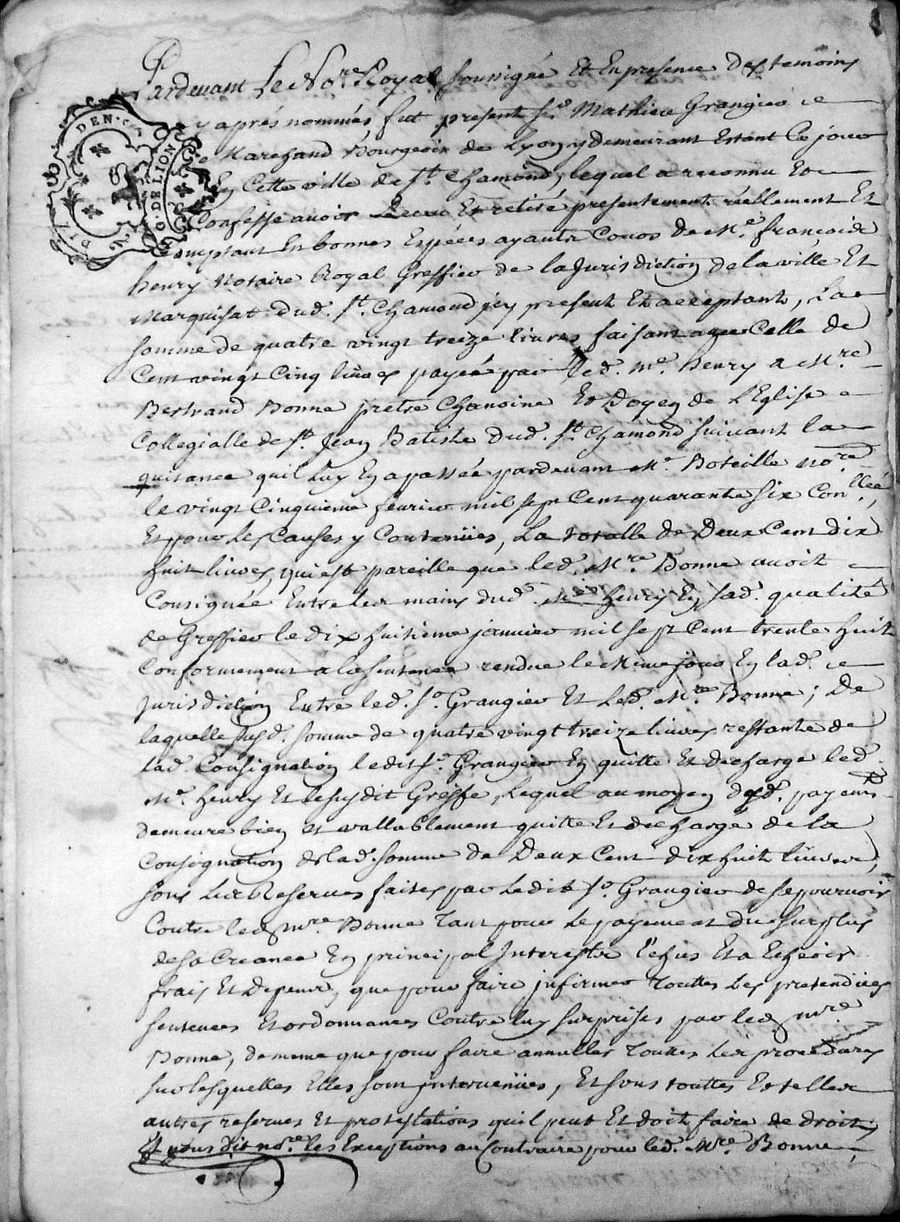 DIX DEN.
G. DE LION
Pardevant Le No.re Royal soussigné Et En presence des temoins
cy aprés nommés fut present sr. Mathieu Grangier
Marchand Bourgeois de Lyon y demeurant Estant Ce jour
En Cette ville de st. Chamond, lequel a reconnu Et
Confessé avoir Receu Et retiré presentement réellement Et
Comptant En bonnes Espéces ayants Cours de Me. francois
henry Notaire Royal Greffier de la Jurisdiction de la ville Et
Marquisat dud. st. Chamond jcy present Et acceptant, La
somme de quatre vingt treize livres faisant avec Celle de
Cent vingt Cinq livres payée par led. me. henry a Mre
Bertrand Bonne pretre Chanoine Et Doyen de L'Eglise
Collegialle de st. Jean Batiste dud. st. Chamond suivant la
quitance quil luy En a passée pardevant Me. Boteille no.re
le vingt Cinquieme fevrier mil sept Cent quarante six Con.llée,
Et pour les Causes y Contenües, La totalle de Deux Cent dix
huit livres, qui est pareille que led. Mre. Bonne avoit
Consignée Entre les mains dud. Me henry En sad. qualité
de Greffier le dix huitieme janvier mil sept Cent trente huit
Conformement a la sentence rendue le meme jour En lad.
jurisdiction Entre led. sr. Grangier Et Led. Mre Bonne; De
laquelle susd. somme de quatre vingt treize livres restante de
lad. Consignation ledit sr. Grangier En quitte Et decharge led.
Me. henry Et le susdit Greffe, Lequel au moyen dud. payem.
demeure bien et vallablement quitte Et decharge de la
Consignation de lad. somme de Deux Cent dix huit livres,
sous les Reserves faites par Ledit sr. Grangier de se pourvoir
Contre led. mre. Bonne Tant pour le payement du surplus
de sa Creance En principal Interestz Echus Et a Echeoir
frais Et Depens, que pour faire infirmer Touttes les pretendües
sentences Et ordonnances Contre luy surprises par led. mre
Bonne, de meme que pour faire annuller touttes les procedures
sur lesquelles Elles sont jntervenües, Et sous touttes Et telles
autres reserves Et protestations quil peut Et doit faire de droit
Et pous dit nore. les Exceptions au Contraire pour led. Mre. Bonne,